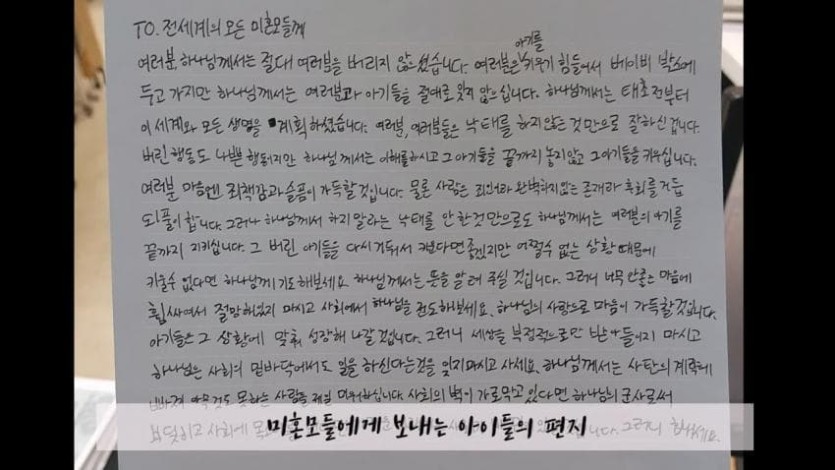 TO. 전세계의 모든 미혼모들께
여러분, 하나님께서는 절대 여러분을 버리지 않으셨습니다. 여러분은 아기를 키우기 힘들어서 베이비 박스에
두고 가지만 하나님께서는 여러분과 아기들을 절대로 잊지 않으십니다. 하나님께서는 태초전부터
이 세계와 모든 생명을 계획하셨습니다. 여러분, 여러분들은 낙태를 하지않는것 만으로 잘하신겁니다.
버린 행동도 나쁜 행동이지만 하나님께서는 이해를하시고 그 아기들을 끝까지 놓지않고 그아기들을 키우십니다.
여러분 마음엔 죄책감과 슬픔이 가득할 것입니다. 물론 사람은 죄인이라 완벽하지않는 존재라 후회를 거듭
되풀이 합니다. 그러나 하나님께서 하지 말라는 낙태를 안 한것 만으로도 하나님께서는 여러분의 아기를
끝까지 지키십니다. 그 버린 아기들을 다시 키운다면 좋겠지만 어쩔수 없는 상황 때문에
키울수 없다면 하나님께 기도해보세요. 하나님께서는 뜻을 알려 주실 것입니다. 그러니 너무 마음에
휩싸여서 절망하지 마시고 사회에서 하나님을 전도해보세요. 하나님의 사랑으로 마음이 가득할것입니다.
아기들은 그 상황에 맞춰 성장해 나갈 것입니다. 그러니 세상을 부정적으로만 받아들이지 마시고
하나님은 사회의 밑바닥에서도 일을 하신다는것을 잊지마시고 사세요. 하나님께서는 사탄의 계략에
빠져 아무것도 못하는 사람을 제일 십니다. 사회의 벽이 가로막고 있다면 하나님의 군사로써
사회에
미혼모들에게 보내는 아이들의 편지